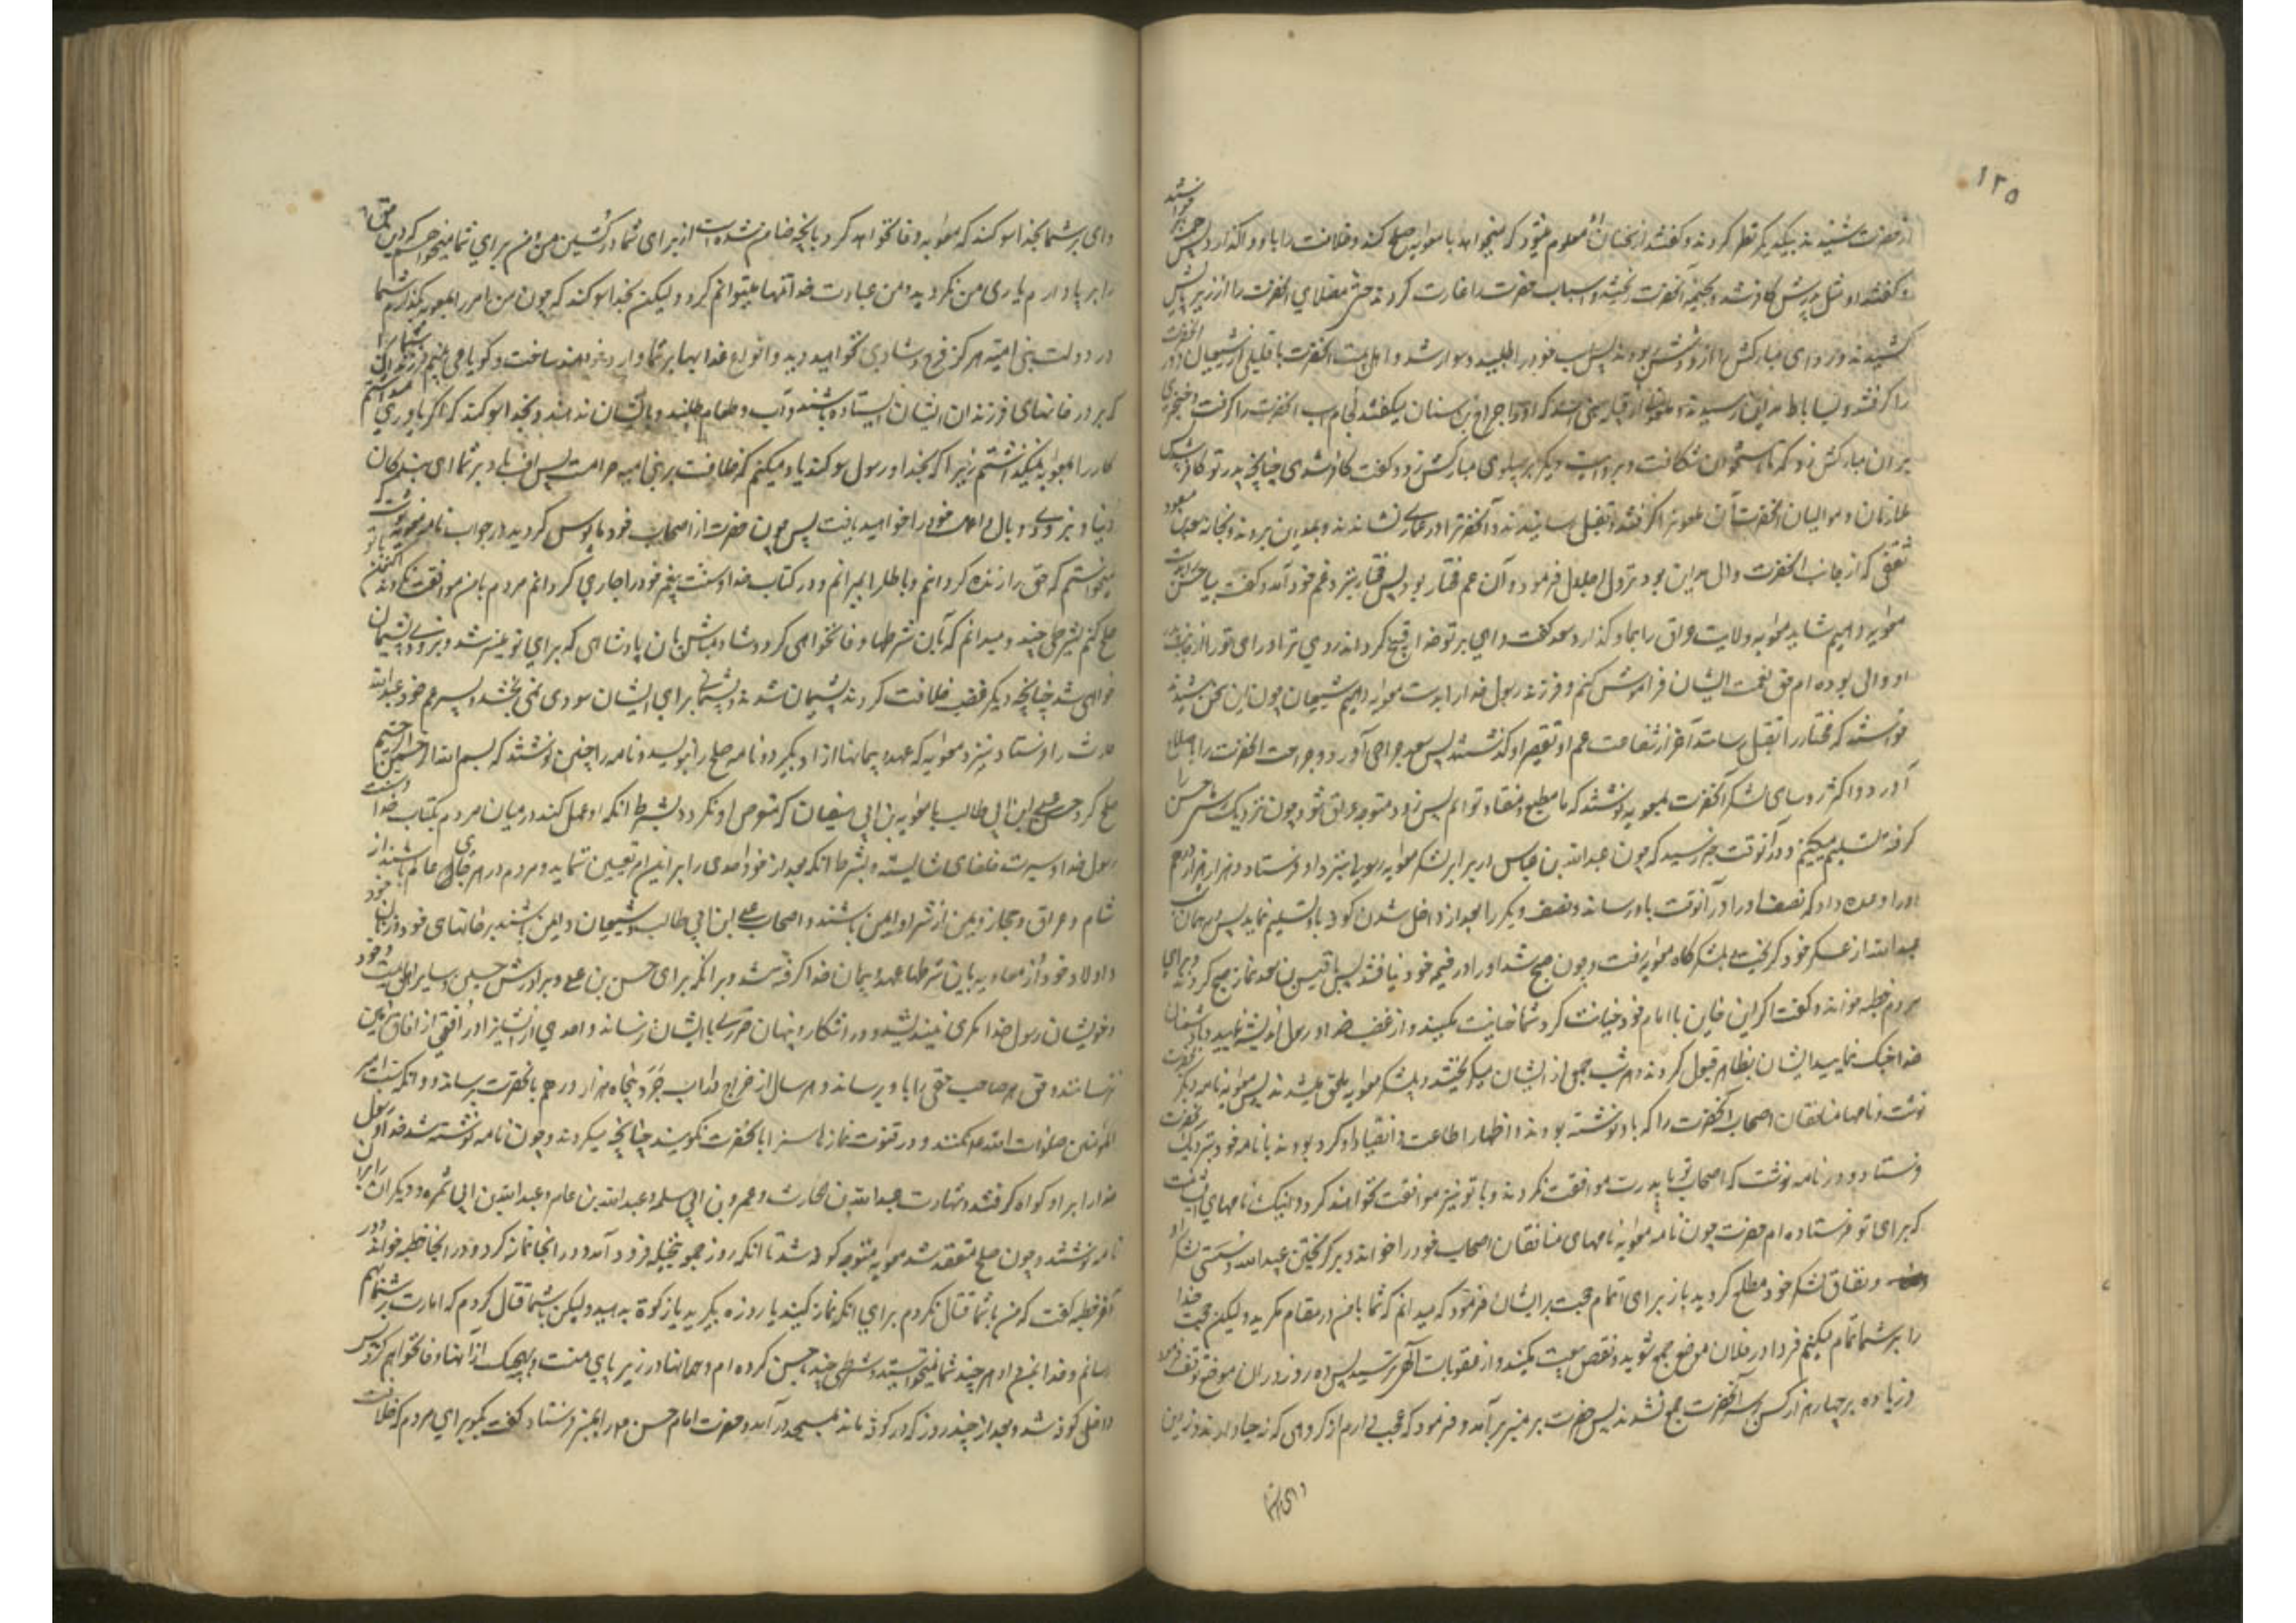 ۱۲۵
از حضرت شنیدند بیکدیگر نظر کردند و گفتند از سخنان او معلوم میشود که میخواهد با معاویه صلح کند و خلافت را باو واگذارد پس برخواستند
و گفتند او مثل پدرش کافر شد و بخیمه آنحضرت ریختند و اسباب حضرت را غارت کردند حتی مصلای آنحضرت را از زیر پایش
کشیدند و ردای مبارکش را از دوشش ربودند پس اسب خود را طلبید و سوار شد و اهل بیت آنحضرت با قلیلی از شیعیان دور آنحضرت
را گرفتند و بساباط مداین رسیدند ملعونی از قبیله بنی اسد که او را جراح بن سنان میگفتند لجام اسب آنحضرت را گرفت و خنجری
بر ران مبارکش زد که تا استخوان شکافت و بروایت دیگر بر پهلوی مبارکش زد و گفت کافر شدی چنانچه پدر تو کافر شد پس
ملازمان و موالیان آنحضرت آن ملعون را گرفتند و بقتل رسانیدند و آنحضرت را در عماری نشاندند و بمداین بردند و بخانه سعد بن مسعود
ثقفی که از جانب آنحضرت والی مداین بود نزول اجلال فرمود و آن عم مختار بود پس مختار بنزد عم خود آمد و گفت بیا حسن را بدست
معویه دهیم شاید معویه ولایت عراق را بما واگذارد سعد گفت وای بر تو خدا قبیح گرداند روی ترا و رای تو را من از جانب
او والی بوده ام حق نعمت ایشان فراموش کنم و فرزند رسول خدا را بدست معویه دهیم شیعیان چون این سخن شنیدند
خواستند که مختار را بقتل رسانند آخر از شفاعت عم او تقصیر او گذشتند پس سعد جراحی آورد و جراحت آنحضرت را باصلاح
آورد و اکثر روسای لشکر آنحضرت بمعویه نوشتند که ما مطیع و منقاد توایم پس زود متوجه عراق شو و چون نزدیک شدی حسن را
گرفته تسلیم میکنیم و در آنوقت خبر رسید که چون عبدالله بن عباس در برابر لشکر معویه رسید معویه بنزد او فرستاد و هزار هزار درهم
او را وعده داد که نصف او را در آنوقت باو رساند و نصف دیگر را بعد از داخل شدن کوفه باو تسلیم نماید پس در همان شب
عبدالله از عسکر خود گریخته بلشکرگاه معویه رفت و چون صبح شد او را در خیمه خود نیافتند پس با قیس بن سعد نماز صبح کردند و برای
مردم خطبه خواند و گفت اگر این خاین با امام خود خیانت کرد شما خیانت مکنید و از غضب خدا و رسول اندیشه نمایید و با دشمنان
خدا جنگ نمایید ایشان بظاهر قبول کردند و هر شب جمعی از ایشان میگریختند و بلشکر معویه ملحق میشدند پس معویه نامه دیگر بحضرت
نوشت و نامهای منافقان اصحاب آنحضرت را که باو نوشته بودند و اظهار اطاعت و انقیاد او کرده بودند با نامه خود بنزدیک آنحضرت
فرستاد و در نامه نوشت که اصحاب تو با پدرت موافقت نکردند و با تو نیز موافقت نخواهند کرد و اینک نامهای ایشانست
که برای تو فرستاده ام حضرت چون نامه معویه و نامهای منافقان اصحاب خود را خواند و بر گریختن عبیدالله و سستی لشکر او
و نفاق لشکر خود مطلع گردید باز برای اتمام حجت بر ایشان فرمود که میدانم که شما با من در مقام مکرید ولیکن حجت خدا
را بر شما تمام میکنم فردا در فلان موضع جمع شوید و نقض بیعت مکنید و از عقوبات الهی بترسید پس ده روز در ان موضع توقف فرمود
و زیاده بر چهار هزار کس بر سر آنحضرت جمع نشدند پس حضرت بر منبر برآمد و فرمود که عجب دارم از گروهی که نه حیا دارند و نه دین
وای بر شما
وای بر شما بخدا سوگند که معویه وفا نخواهد کرد بانچه ضامن شده است از برای شما در کشتن من و من برای شما میخواستم که دین حق
را بر پا دارم یاری من نکردید و من عبادت خدا تنها میتوانم کرد ولیکن بخدا سوگند که چون من امر را بمعویه بگذارم شما
در دولت بنی امیه هرگز فرح و شادی نخواهید دید و انواع عذابها بر شما وارد خواهند ساخت و گویا می بینم فرزندان شما را
که بر در خانهای فرزندان ایشان ایستاده باشند و آب و طعام طلبند و بایشان ندهند و بخدا سوگند که اگر یاوری میداشتم
کار را بمعویه نمیگذاشتم زیرا که بخدا و رسول سوگند یاد میکنم که خلافت بر بنی امیه حرامست پس اف باد بر شما ای بندگان
دنیا و بزودی وبال اعمال خود را خواهید یافت پس چون حضرت از اصحاب خود مایوس گردید در جواب نامه معویه نوشت که
میخواستم که حق را زنده گردانم و باطل را بمیرانم و در کتاب خدا و سنت پیغمبر خود را جاری گردانم مردم با من موافقت نکردند اکنون با تو
صلح کنم بشرطی چند و میدانم که بآن شرطها وفا نخواهی کرد و شاد مباش بان پادشاهی که برای تو میسر شد و بزودی پشیمان
خواهی شد چنانچه دیگر غصب خلافت کردند پشیمان شدند و پشیمانی برای ایشان سودی نمی بخشد پس پسر عم خود عبدالله
حارث را فرستاد بنزد معویه که عهد و پیمانها از او بگیرد و نامه صلح را بنویسد و نامه را چنین نوشتند که بسم الله الرحمن الرحیم
صلح کرد حسن بن علی ابن ابی طالب با معویه بن ابی سفیان که متعرض او نگردد بشرط انکه او عمل کند در میان مردم بکتاب خدا و سنت
رسول خدا و سیرت خلفای شایسته و بشرط انکه بعد از خود احدی را بر این امر تعیین ننماید و مردم در هر جای عالم باشند از
شام و عراق و حجاز و یمن از شر او ایمن باشند و اصحاب علی ابن ابی طالب و شیعیان او ایمن باشند بر خانهای خود و زنان خود
و اولاد خود از معاویه باین شرطها عهد و پیمان خدا گرفته شد و بر انکه برای حسن بن علی و برادرش حسین و سایر اهل بیت خود
و خویشان رسول خدا مکری نیندیشد و در اشکار و پنهان ضرری بایشان نرساند و احدی از ایشان را در افقی از افاق زمین
نترسانند و حق هر صاحب حقی را باو برساند و هر سال از خراج داراب جرد پنجاه هزار درهم بآنحضرت برساند و انکه سب امیر
المؤمنین صلوات الله علیه نکنند و در قنوت نمازها ناسزا بآنحضرت نگویند چنانچه میکردند و چون نامه نوشته شد خدا و رسول
خدا را بر او گواه گرفتند و شهادت عبدالله بن حارث و عمرو بن ابی سلمه و عبدالله بن عامر و عبدالله بن ابی سمره و دیگران را بر این
نامه نوشتند و چون صلح منعقد شد معویه متوجه کوفه شد تا انکه روز جمعه بنخیله فرود آمد و در انجا نماز کرد و در انجا خطبه خواند و در
آخر خطبه گفت که من با شما قتال نکردم برای انکه نماز کنید یا روزه بگیرید یا زکوة بدهید ولیکن با شما قتال کردم که امارت بر شما بهم
رسانم و خدا بمن داد هر چند شما نمیخواستید و شرطی چند با حسن کرده ام و همه انها در زیر پای منست و بهیچیک از انها وفا نخواهم کرد پس
داخل کوفه شد و بعد از چند روز که در کوفه ماند بمسجد در آمد و حضرت امام حسن را بر منبر فرستاد و گفت بگو برای مردم که خلافت